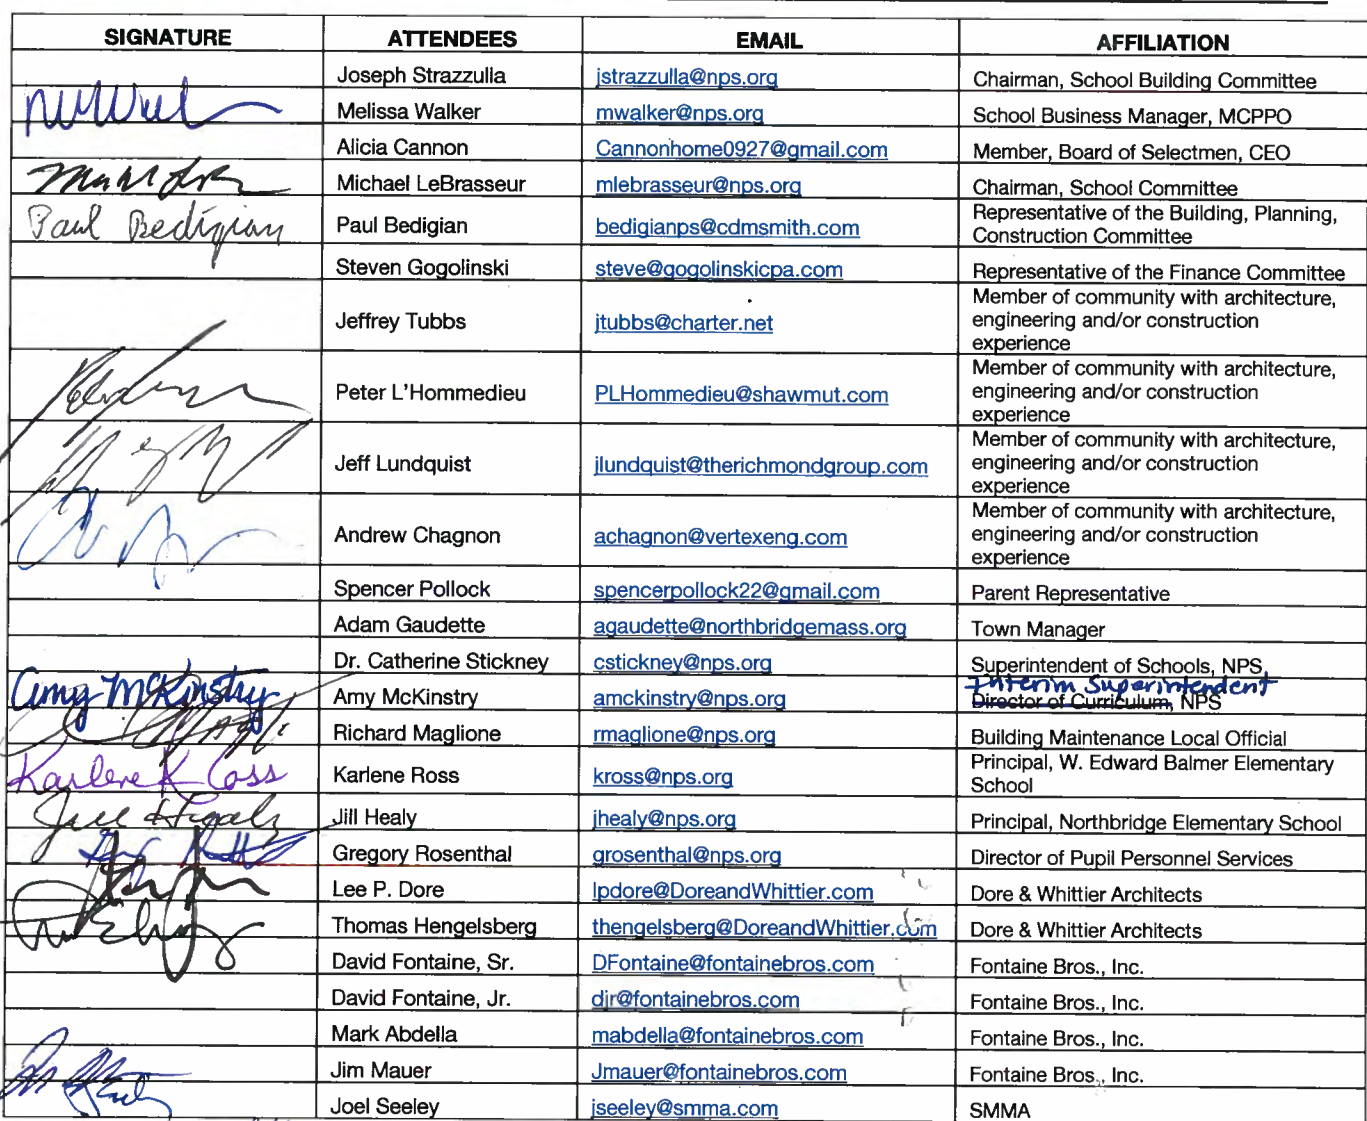 SIGNATURE ATTENDEES EMAIL AFFILIATION
Joseph Strazzulla jstrazzulla@nps.org Chairman, School Building Committee
Melissa Walker mwalker@nps.org School Business Manager, MCPPO
Alicia Cannon Cannonhome0927@gmail.com Member, Board of Selectmen, CEO
Michael LeBrasseur mlebrasseur@nps.org Chairman, School Committee
Paul Bedigian Paul Bedigian bedigianps@cdmsmith.com Representative of the Building, Planning,
Construction Committee
Steven Gogolinski steve@gogolinskicpa.com Representative of the Finance Committee
Jeffrey Tubbs jtubbs@charter.net Member of community with architecture,
engineering and/or construction
experience
Peter L'Hommedieu PLHommedieu@shawmut.com Member of community with architecture,
engineering and/or construction
experience
Jeff Lundquist jlundquist@therichmondgroup.com Member of community with architecture,
engineering and/or construction
experience
Andrew Chagnon achagnon@vertexeng.com Member of community with architecture,
engineering and/or construction
experience
Spencer Pollock spencerpollock22@gmail.com Parent Representative
Adam Gaudette agaudette@northbridgemass.org Town Manager
Dr. Catherine Stickney cstickney@nps.org Superintendent of Schools, NPS
Interim Superintendent
Amy McKinstry Amy McKinstry amckinstry@nps.org Director of Curriculum, NPS
Richard Maglione rmaglione@nps.org Building Maintenance Local Official
Karlene K Ross Karlene Ross kross@nps.org Principal, W. Edward Balmer Elementary
School
Jill Healy Jill Healy jhealy@nps.org Principal, Northbridge Elementary School
Gregory Rosenthal grosenthal@nps.org Director of Pupil Personnel Services
Lee P. Dore lpdore@DoreandWhittier.com Dore & Whittier Architects
Thomas Hengelsberg thengelsberg@DoreandWhittier.com Dore & Whittier Architects
David Fontaine, Sr. DFontaine@fontainebros.com Fontaine Bros., Inc.
David Fontaine, Jr. djr@fontainebros.com Fontaine Bros., Inc.
Mark Abdella mabdella@fontainebros.com Fontaine Bros., Inc.
Jim Mauer Jmauer@fontainebros.com Fontaine Bros., Inc.
Joel Seeley jseeley@smma.com SMMA